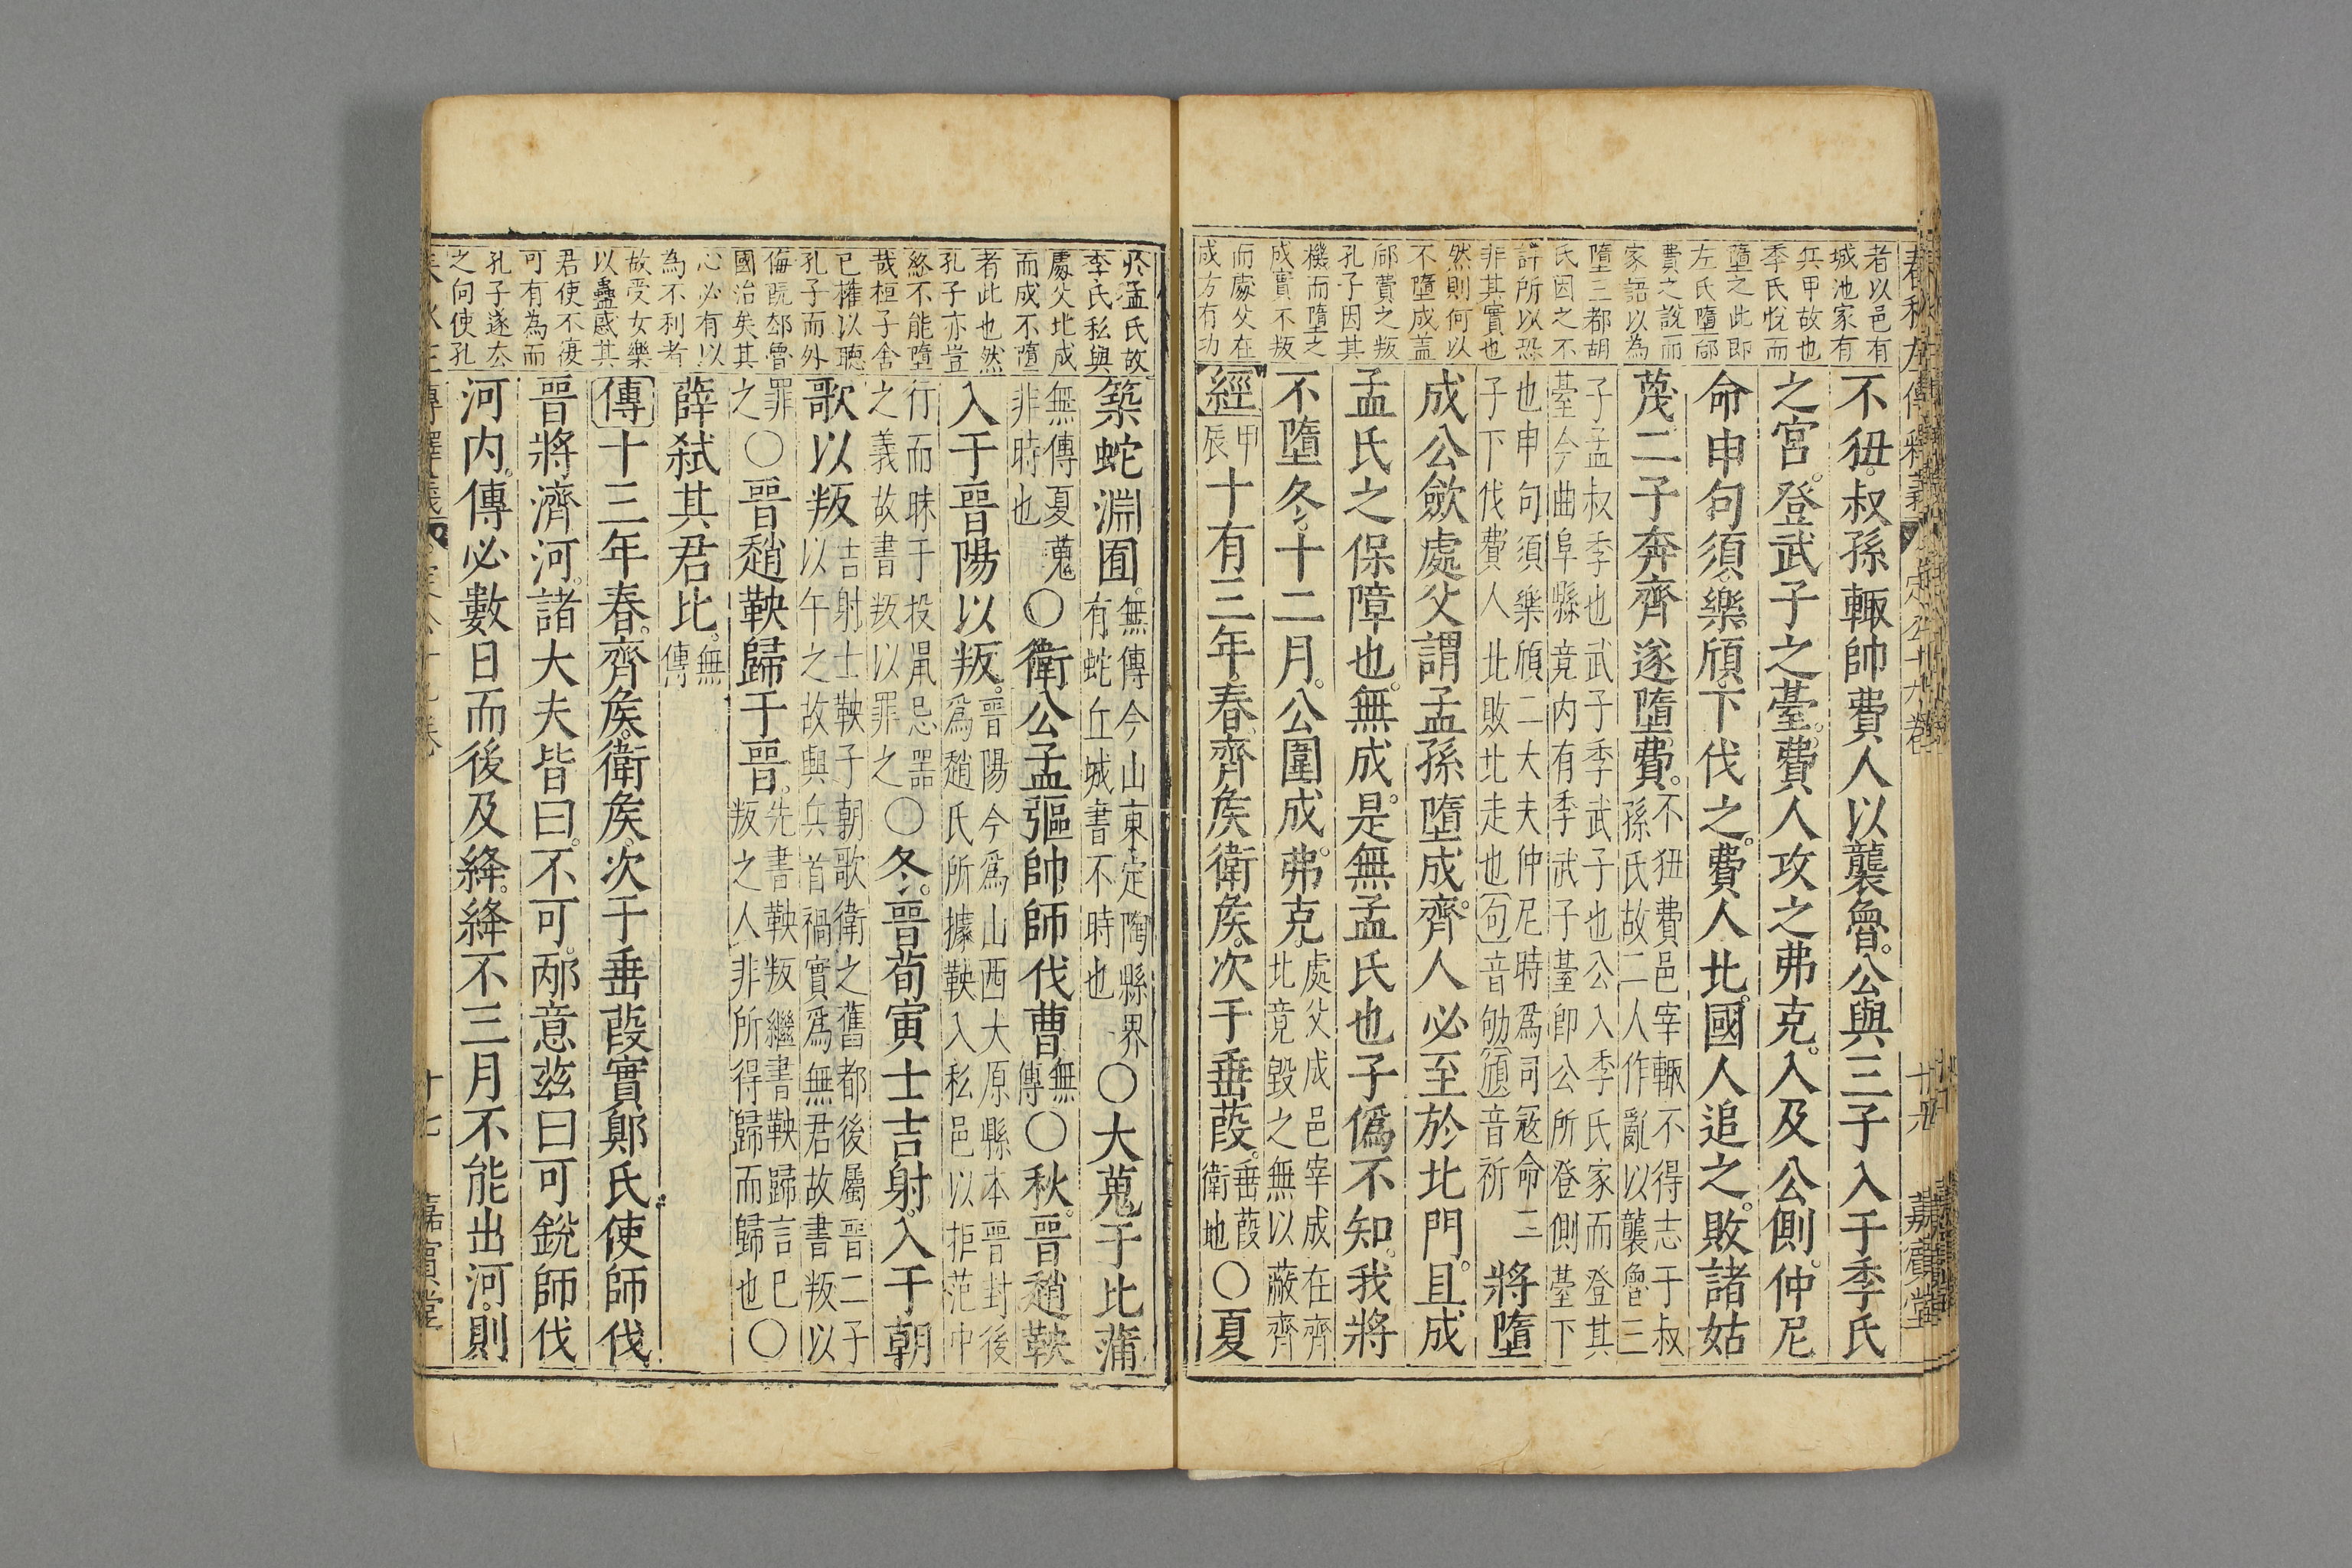 者以邑有
城池家有
兵甲故也
季氏悅而
墮之此即
左氏墮郈
費之說而
家語以為
墮三都胡
氏因之不
詳所以恐
非其實也
然則何以
不墮成盖
郈費之叛
孔子因其
機而墮之
成實不叛
而處父在
成方有功
不狃。叔孫輒帥費人以襲魯。公與三子入于季氏
之宮。登武子之臺。費人攻之弗克。入及公側。仲尼
命申句須。樂頎。下伐之。費人北。國人追之。敗諸姑
蔑二子奔齊遂墮費。不狃費邑宰輒不得志于叔
孫氏故二人作亂以襲魯三
子孟叔季也武子季武子也公入季氏家而登其
臺今曲阜縣竟內有季武子臺即公所登側臺下
也申句須樂頎二大夫仲尼時爲司寇命三
子下伐費人北敗北走也句音劬頎音祈
將墮
成公歛處父謂孟孫墮成。齊人必至於北門。且成
孟氏之保障也。無成。是無孟氏也子僞不知。我將
不墮冬。十二月。公圍成。弗克。處父成邑宰成在齊
北竟毀之無以蔽齊
經甲
辰十有三年春。齊矦衛矦。次于垂葭。垂葭
衛地〇夏
於孟氏故
季氏私與
處父比成
而成不墮
者此也然
孔子亦豈
終不能墮
哉桓子舍
已權以聽
孔子而外
侮旣郤魯
國治矣其
心必有以
為不利者
故受女樂
以蠱惑其
君使不復
可有為而
孔子遂去
之向使孔
築蛇淵囿。無傳今山東定陶縣界
有蛇丘城書不時也〇大蒐于比蒲
無傳夏蒐
非時也〇衛公孟彄帥師伐曹無
傳〇秋。晉趙鞅
入于晉陽以叛。晉陽今爲山西大原縣本晉封後
爲趙氏所據鞅入私邑以拒范中
行而昧于投鼡忌器
之義故書叛以罪之〇冬。晉荀寅士吉射。入于朝
歌以叛吉射士鞅子朝歌衛之舊都後屬晉二子
以午之故與兵首禍實爲無君故書叛以
罪
之〇晉趙鞅歸于晉。先書鞅叛繼書鞅歸言已
叛之人非所得歸而歸也〇
薛弒其君比。無
傳
傳十三年春。齊矦。衛矦。次于垂葭實鄓氏。使師伐
晉將濟河。諸大夫皆曰。不可。邴意茲曰可銳師伐
河內。傳必數日而後及絳。絳不三月不能出河。則
嘉賓堂